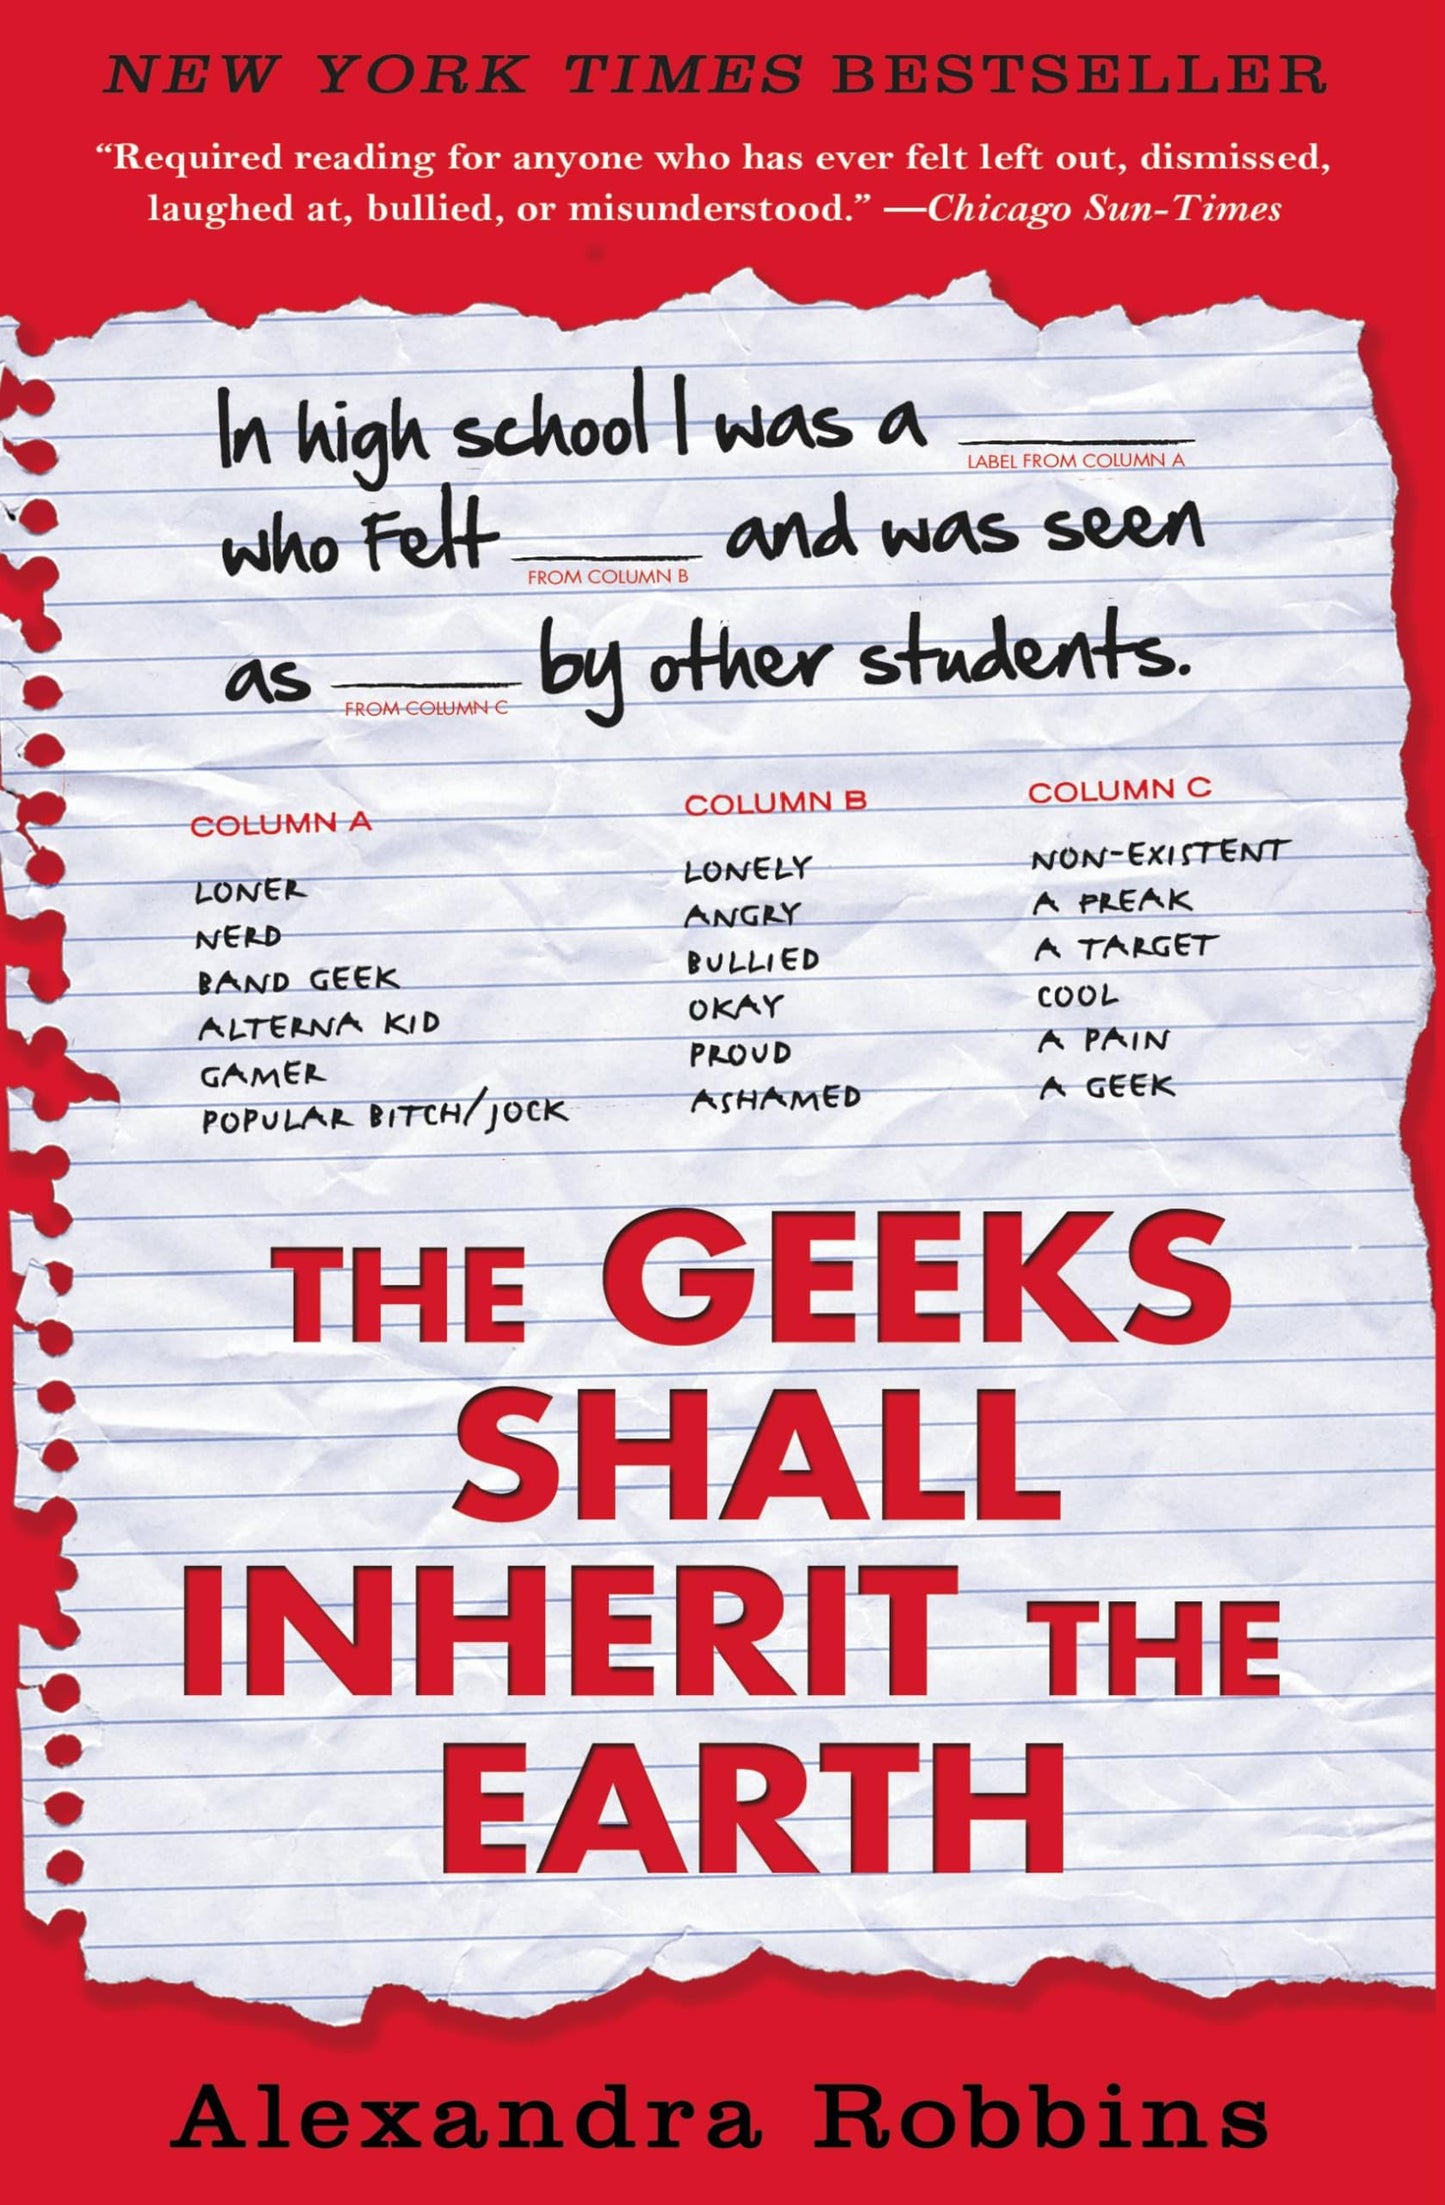 NEW YORK TIMES BESTSELLER
“Required reading for anyone who has ever felt left out, dismissed,
laughed at, bullied, or misunderstood.” —Chicago Sun-Times
In high school I was a ________
LABEL FROM COLUMN A
who felt ________ and was seen
FROM COLUMN B
as ________ by other students.
FROM COLUMN C
COLUMN A
LONER
NERD
BAND GEEK
ALTERNA KID
GAMER
POPULAR BITCH/JOCK
COLUMN B
LONELY
ANGRY
BULLIED
OKAY
PROUD
ASHAMED
COLUMN C
NON-EXISTENT
A FREAK
A TARGET
COOL
A PAIN
A GEEK
THE GEEKS
SHALL
INHERIT THE
EARTH
Alexandra Robbins